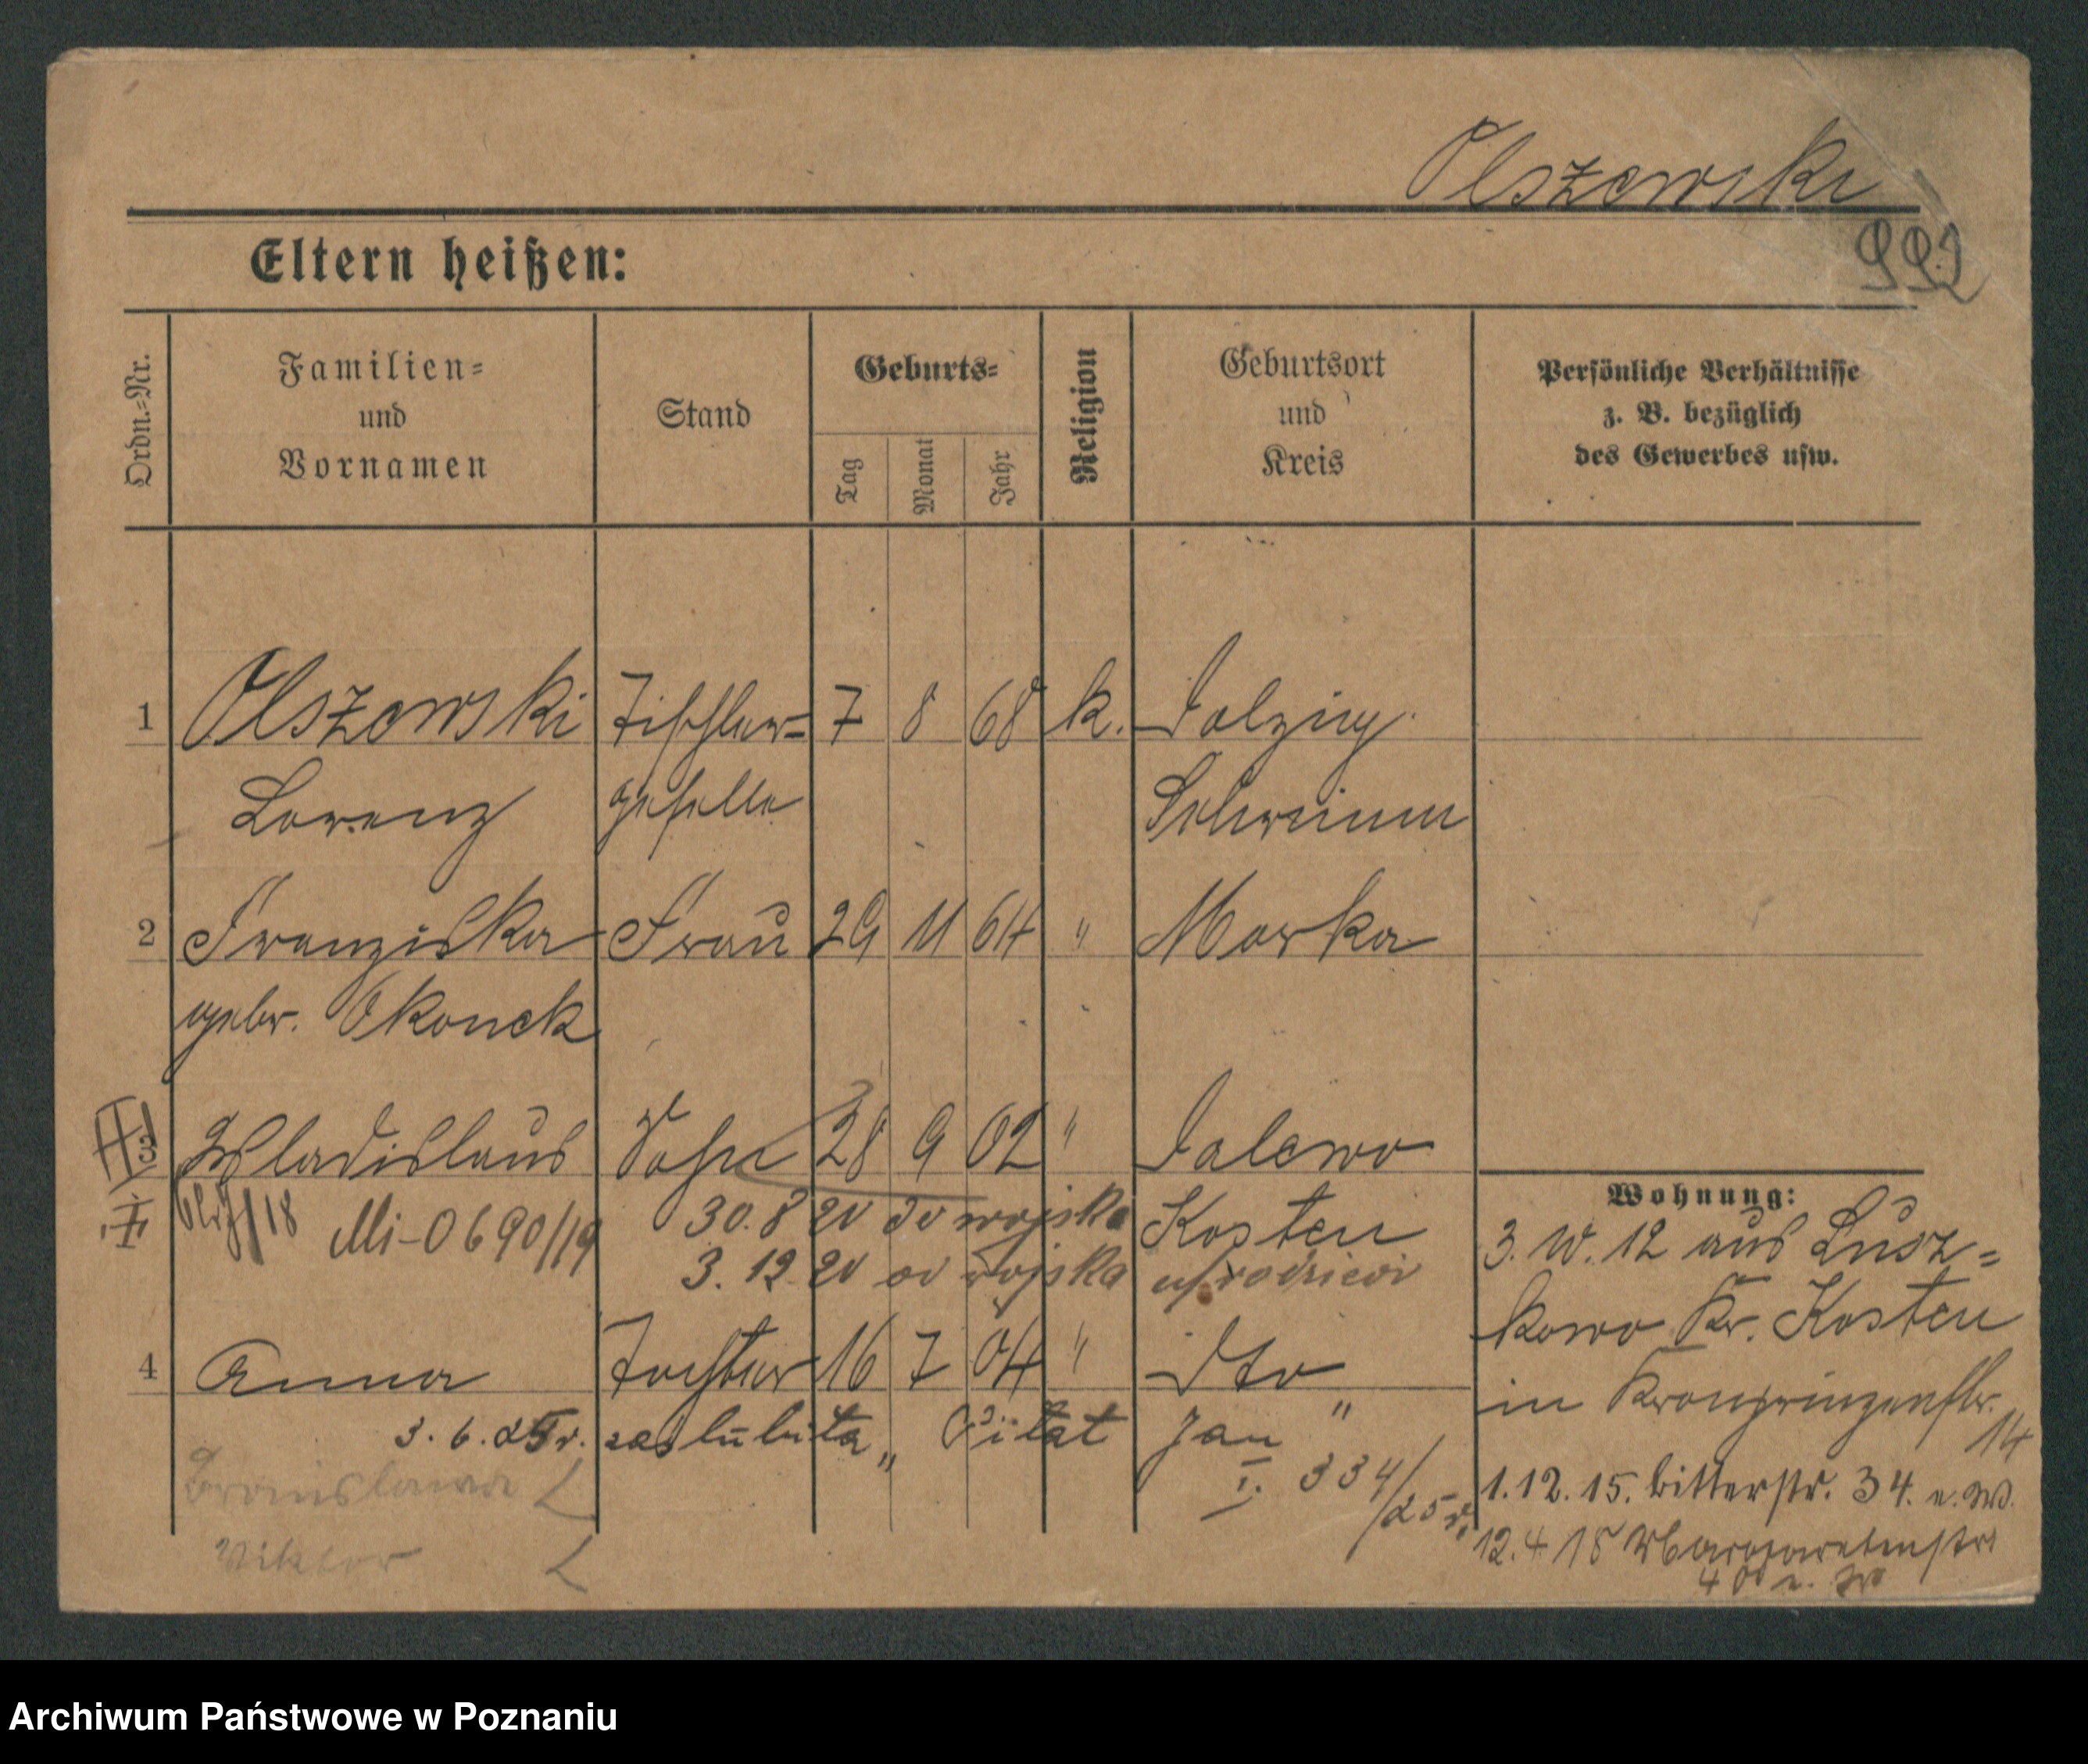 Olszewski
992
Eltern heißen:
Ordn.-Nr.
Familien-
und
Vornamen
Stand
Geburts-
Tag
Monat
Jahr
Religion
Geburtsort
und
Kreis
Persönliche Verhältnisse
z. B. bezüglich
des Gewerbes usw.
1 Olszewski Tischler- 7 8 68 k. Dolzig
Lorenz geselle Schrimm
2 Franziska Frau 29 11 64 " Morka
gebr. Okonek
3 Wladislaus Sohn 28 9 02 " Dalewo
/18 Mi-0690/19 30.8 20 do wojska Kosten
3. 12 20 od wojska rodziców
4 Anna Tochter 16 7 04 " Dto
3. 6. 25 r. zaślubiła " Jan "
I. 334/25 r.
Bronislawa
Viktor
Wohnung:
3. 10. 12 aus Lusz-
kowo Kr. Kosten
in Kronprinzenstr.
14
1. 12. 15. Bitterstr. 34. e. W.
12. 4 18 Margaretenstr
40 e. W
Archiwum Państwowe w Poznaniu